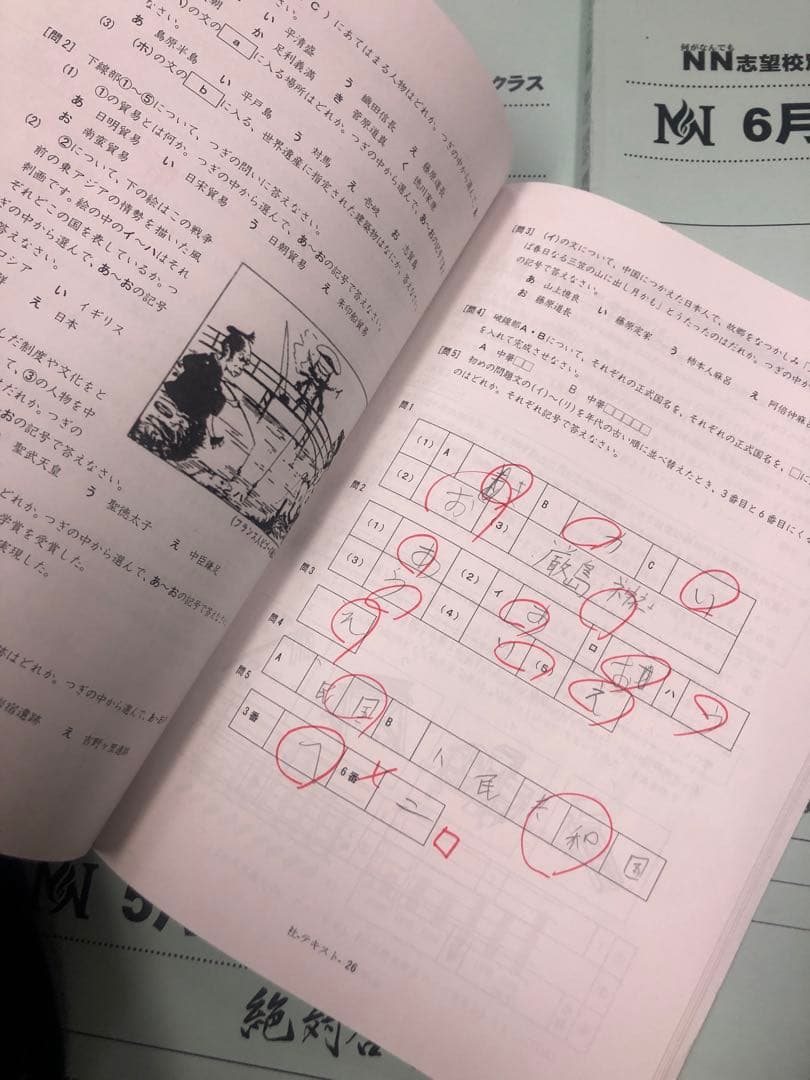 C）にあてはまる人物はどれか。つぎの中から選んで、
い 平清盛 う 織田信長 え 藤原道長
か 足利義満 き 菅原道真 く 徳川家康
(3) (ホ)の文の a に入る場所はどれか。つぎの中から選んで、あ〜おの記号で答えなさい。
あ 島原半島 い 平戸島 う 対馬 え 壱岐 お 志賀島
の文の b に入る、世界遺産に指定された建築物はなにか。答えなさい。
[問2] 下線部①〜⑤について、つぎの問いに答えなさい。
(1) ①の貿易とは何か。つぎの中から選んで、あ〜おの記号で答えなさい。
あ 日明貿易 い 日宋貿易 う 日朝貿易 え 朱印船貿易
お 南蛮貿易
(2) ②について、下の絵はこの戦争
前の東アジアの情勢を描いた風
刺画です。絵の中のイ〜ハはそれ
ぞれどこの国を表しているか。つ
ぎの中から選んで、あ〜おの記号
答えなさい。
ロシア い イギリス
え 日本
した制度や文化をと
て、③の人物を中
れか。つぎの
おの記号で答えなさい。
聖武天皇 う 聖徳太子 え 中臣鎌足
どれか。つぎの中から選んで、あ〜おの記号で答えなさい。
学賞を受賞した。
実現した。
跡はどれか。つぎの中から選んで、あ〜お
宿遺跡 え 吉野ヶ里遺跡
[問3] (イ)の文について、中国につかえた日本人で、故郷をなつかしみ「
ば春日なる三笠の山に出し月かも」とうたったのはだれか。つぎの中か
の記号で答えなさい。
あ 山上憶良 い 藤原定家 う 柿本人麻呂 え 阿倍仲麻
お 藤原道長
[問4] 破線部A・Bについて、それぞれの正式国名を、それぞれの正式国名を、□に
を入れて完成させなさい。
A 中華□□ B 中華□□□□□
[問5] 初めの問題文の(イ)〜(リ)を年代の古い順に並べ替えたとき、3番目と6番目にくる
のはどれか。それぞれ記号で答えなさい。
問1
(1) A B C い
(2) お (3) 厳島神社
問2
(1) あ (2) イ あ ロ お ハ い
(3) う (4) い (5) え
問3
え
問4
A 民国 B 人民共和国
問5
3番 へ 6番 ニ
社-テキスト- 26
クラス
何がなんでも
NN志望校別
6月
5月
絶対合